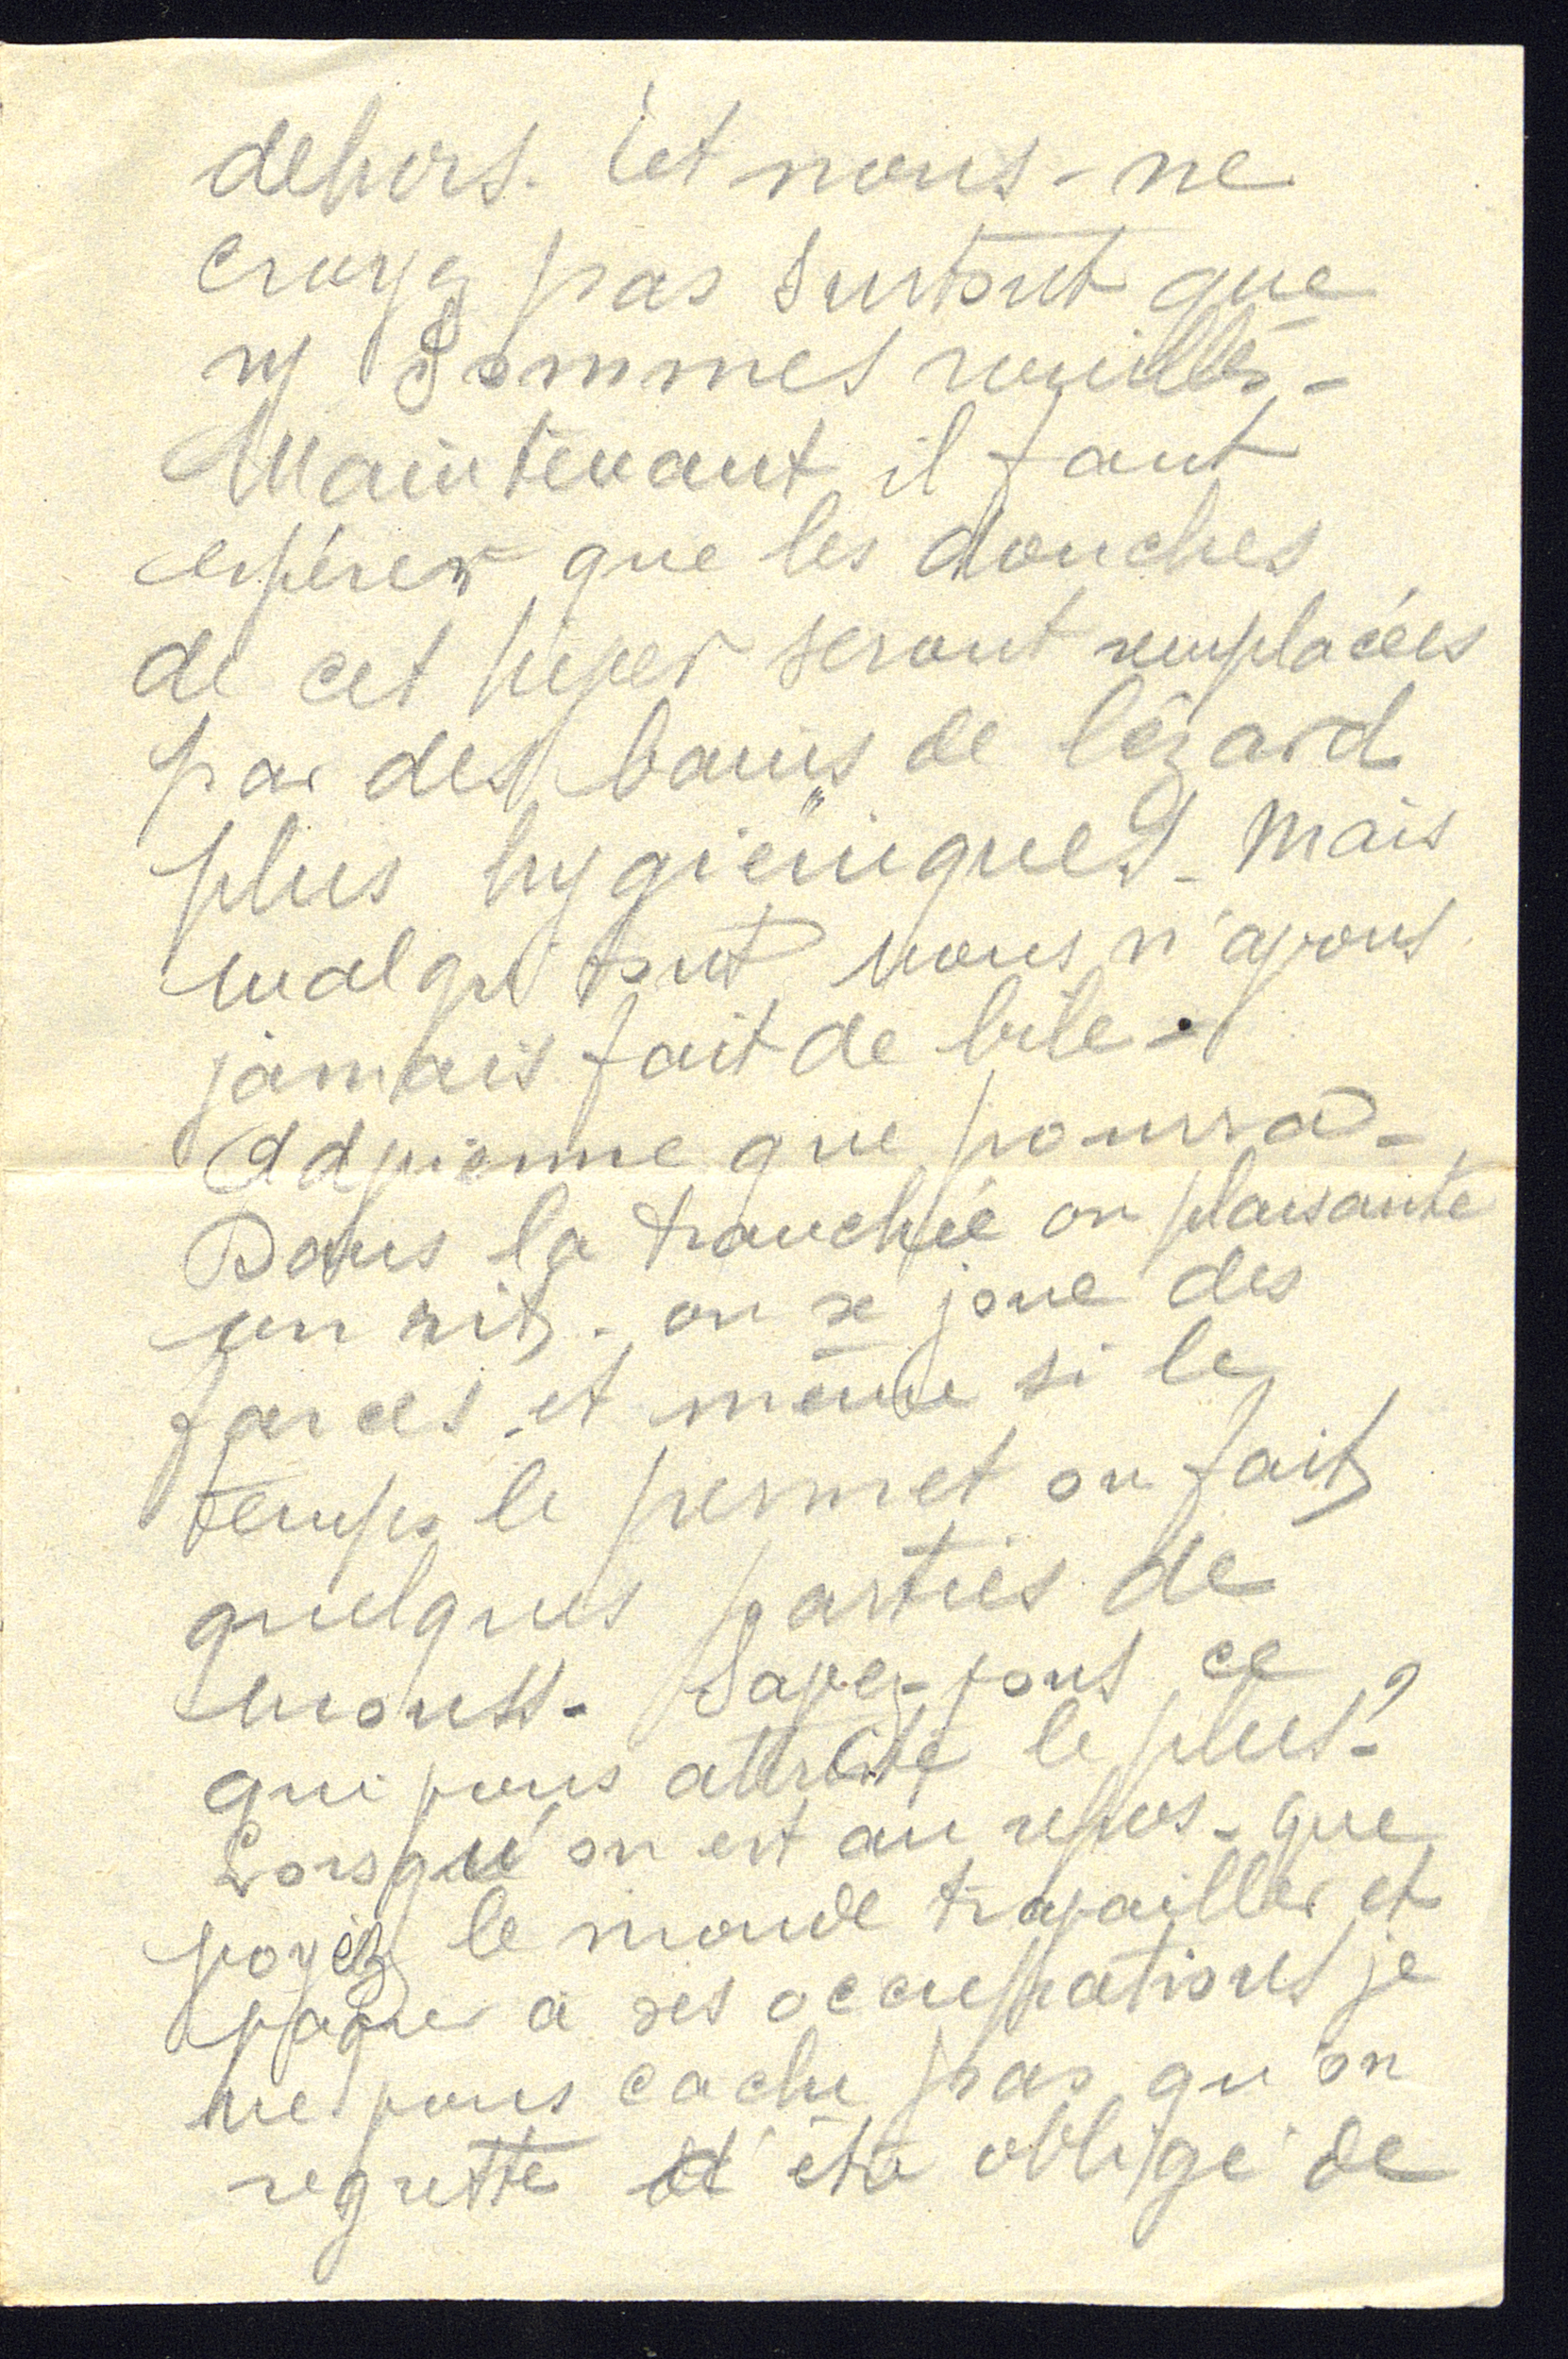 dehors. et nous - ne
croyez pas surtout que
ns sommes rouillés -
Maintenant il faut
espérer que les douches
de cet hiver seront remplacées
par des bains de lézard
plus hygiëniques - mais
malgré tout nous n'avons
jamais fait de bile -
Advienne que pourra -
Dans la tranchée on plaisante
on rit. on se joue des
farces. et même si le
temps le permet on fait
quelques parties de
Savez-vous ce
qui vous attriste le plus ?
Lorsqu'on est au repos - que
voyez le monde travailler et
vaquer a ses occupations je
ne vous cache pas qu'on
regrette d'être obligé de